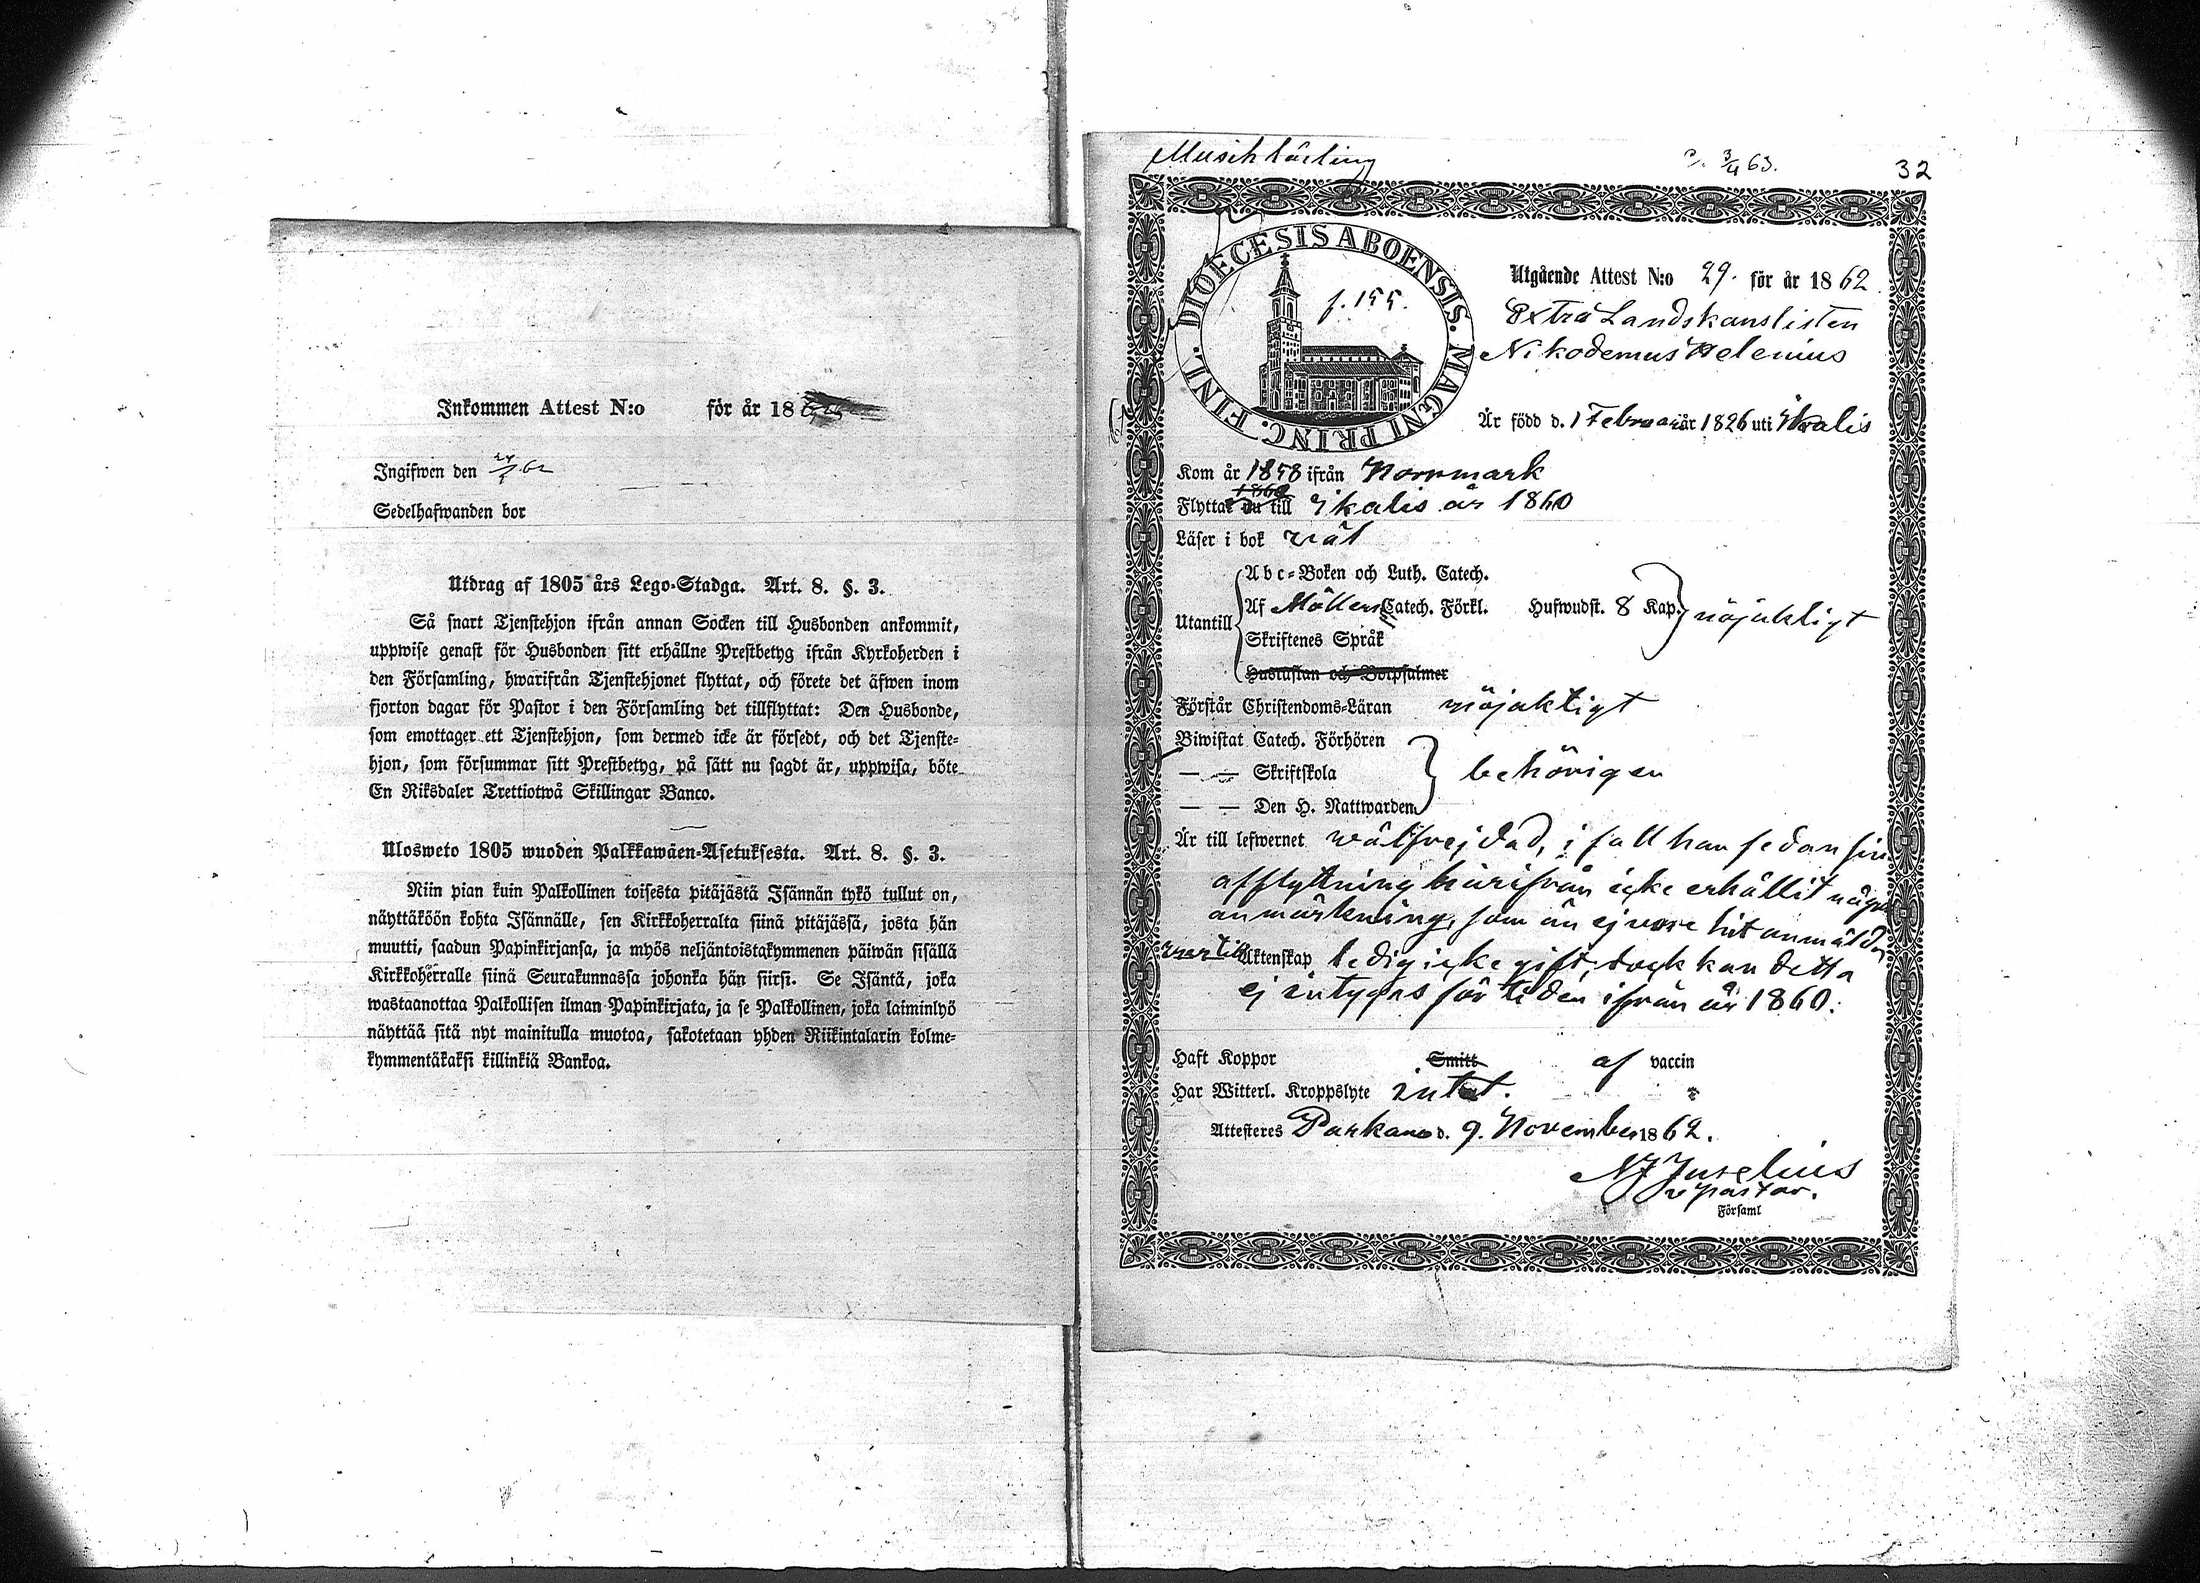 Inkommen Attest N:o för år 18
Ingifwen den 62
Sedelhafwanden bor
Utdrag af 1805 års Lego-Stadga. Art. 8. §. 3.
Så snart Tjenstehjon ifrån annan Socken till Husbonden ankommit,
uppwise genast för Husbonden sitt erhållne Prestbetyg ifrån Kyrkoherden i
den Församling, hwarifrån Tjenstehjonet flyttat, och förete det äfwen inom
fjorton dagar för Pastor i den Församling det tillflyttat: Den Husbonde,
som emottager ett Tjenstehjon, som dermed icke är försedt, och det Tjenste-
hjon, som försummar sitt Prestbetyg, på sätt nu sagdt är, uppwisa, böte
En Riksdaler Trettiotwå Skillingar Banco.
Ulosweto 1805 wuoden Palkkawäen-Asetuksesta. Art. 8. §. 3.
Niin pian kuin Palkollinen toisesta pitäjästä Isännän tykö tullut on,
näyttäköön kohta Isännälle, sen Kirkkoherralta siinä pitäjässä, josta hän
muutti, saadun Papinkirjansa, ja myös neljäntoistakymmenen päiwän sisällä
Kirkkoherralle siinä Seurakunnassa johonka hän siirsi. Se Isäntä, joka
wastaanottaa Palkollisen ilman Papinkirjata, ja se Palkollinen, joka laiminlyö
näyttää sitä nyt mainitulla muotoa, sakotetaan yhden Riikintalarin kolme-
kymmentäkaksi killinkiä Bankoa.
Musiklärling
3/4 63.
32
DIOECESIS ABOENSIS. MAGNI PRINC. FINL.
f. 155.
Utgående Attest N:o 29. för år 1862.
Extra Landskanslisten
Nikodemus Helenius
Är född d. 1 Februari år 1826 uti Ikalis
Kom år 1858 ifrån Norrmark
1860
Flyttat nu till Ikalis år 1860
Läser i bok väl
Utantill
Abc-Boken och Luth. Catech.
Af Möllers Catech. Förkl. Hufwudst. 8 Kap. nöjaktigt
Skriftenes Språk
Hustaflan och Botpsalmer
Förstår Christendoms-Läran nöjaktigt
Biwistat Catech. Förhören
— — Skriftskola behörigen
— — Den H. Nattwarden
Är till lefwernet wälfrejdad, i fall han sedan sin
afflyttning härifrån icke erhållit någon
anmärkning, som än ej vore hit anmäld
Äktenskap ledig icke gift; dock kan detta
ej intygas för tiden ifrån år 1860.
Haft Koppor Smitt af vaccin
Har Witterl. Kroppslyte intet.
Attesteres Parkano d. 9. November 1862.
N J Juselius
v pastor.
Församl